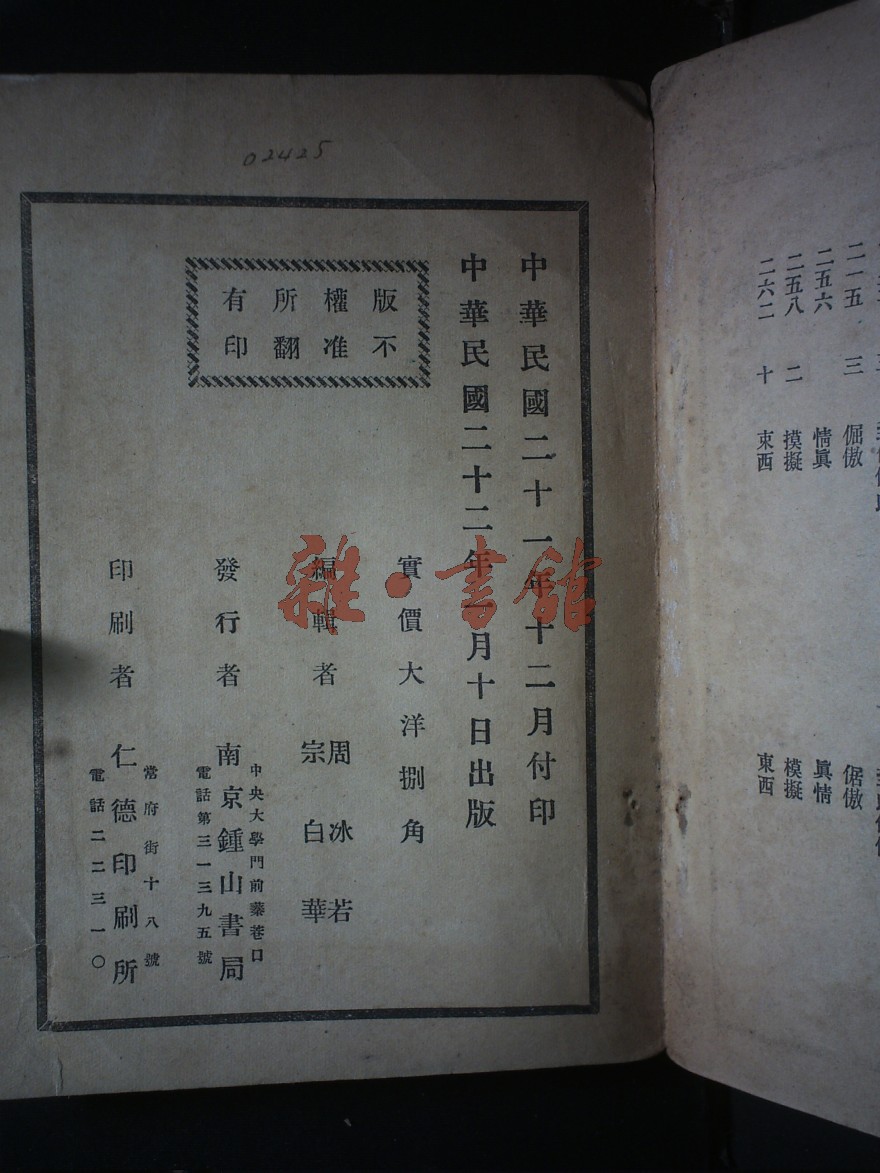 02425
中華民國二十一年十二月付印
中華民國二十二年一月十日出版
版權所有
不准翻印
實價大洋捌角
編輯者 周冰若
宗白華
發行者 南京鍾山書局
中央大學門前蓁巷口
電話第三一三九五號
印刷者 仁德印刷所
常府街十八號
電話二二三一〇
雜·書館
二一五 三 倔傲 倨傲
二五六 情眞 眞情
二五八 二 摸擬 模擬
二六二 十 東西 東西